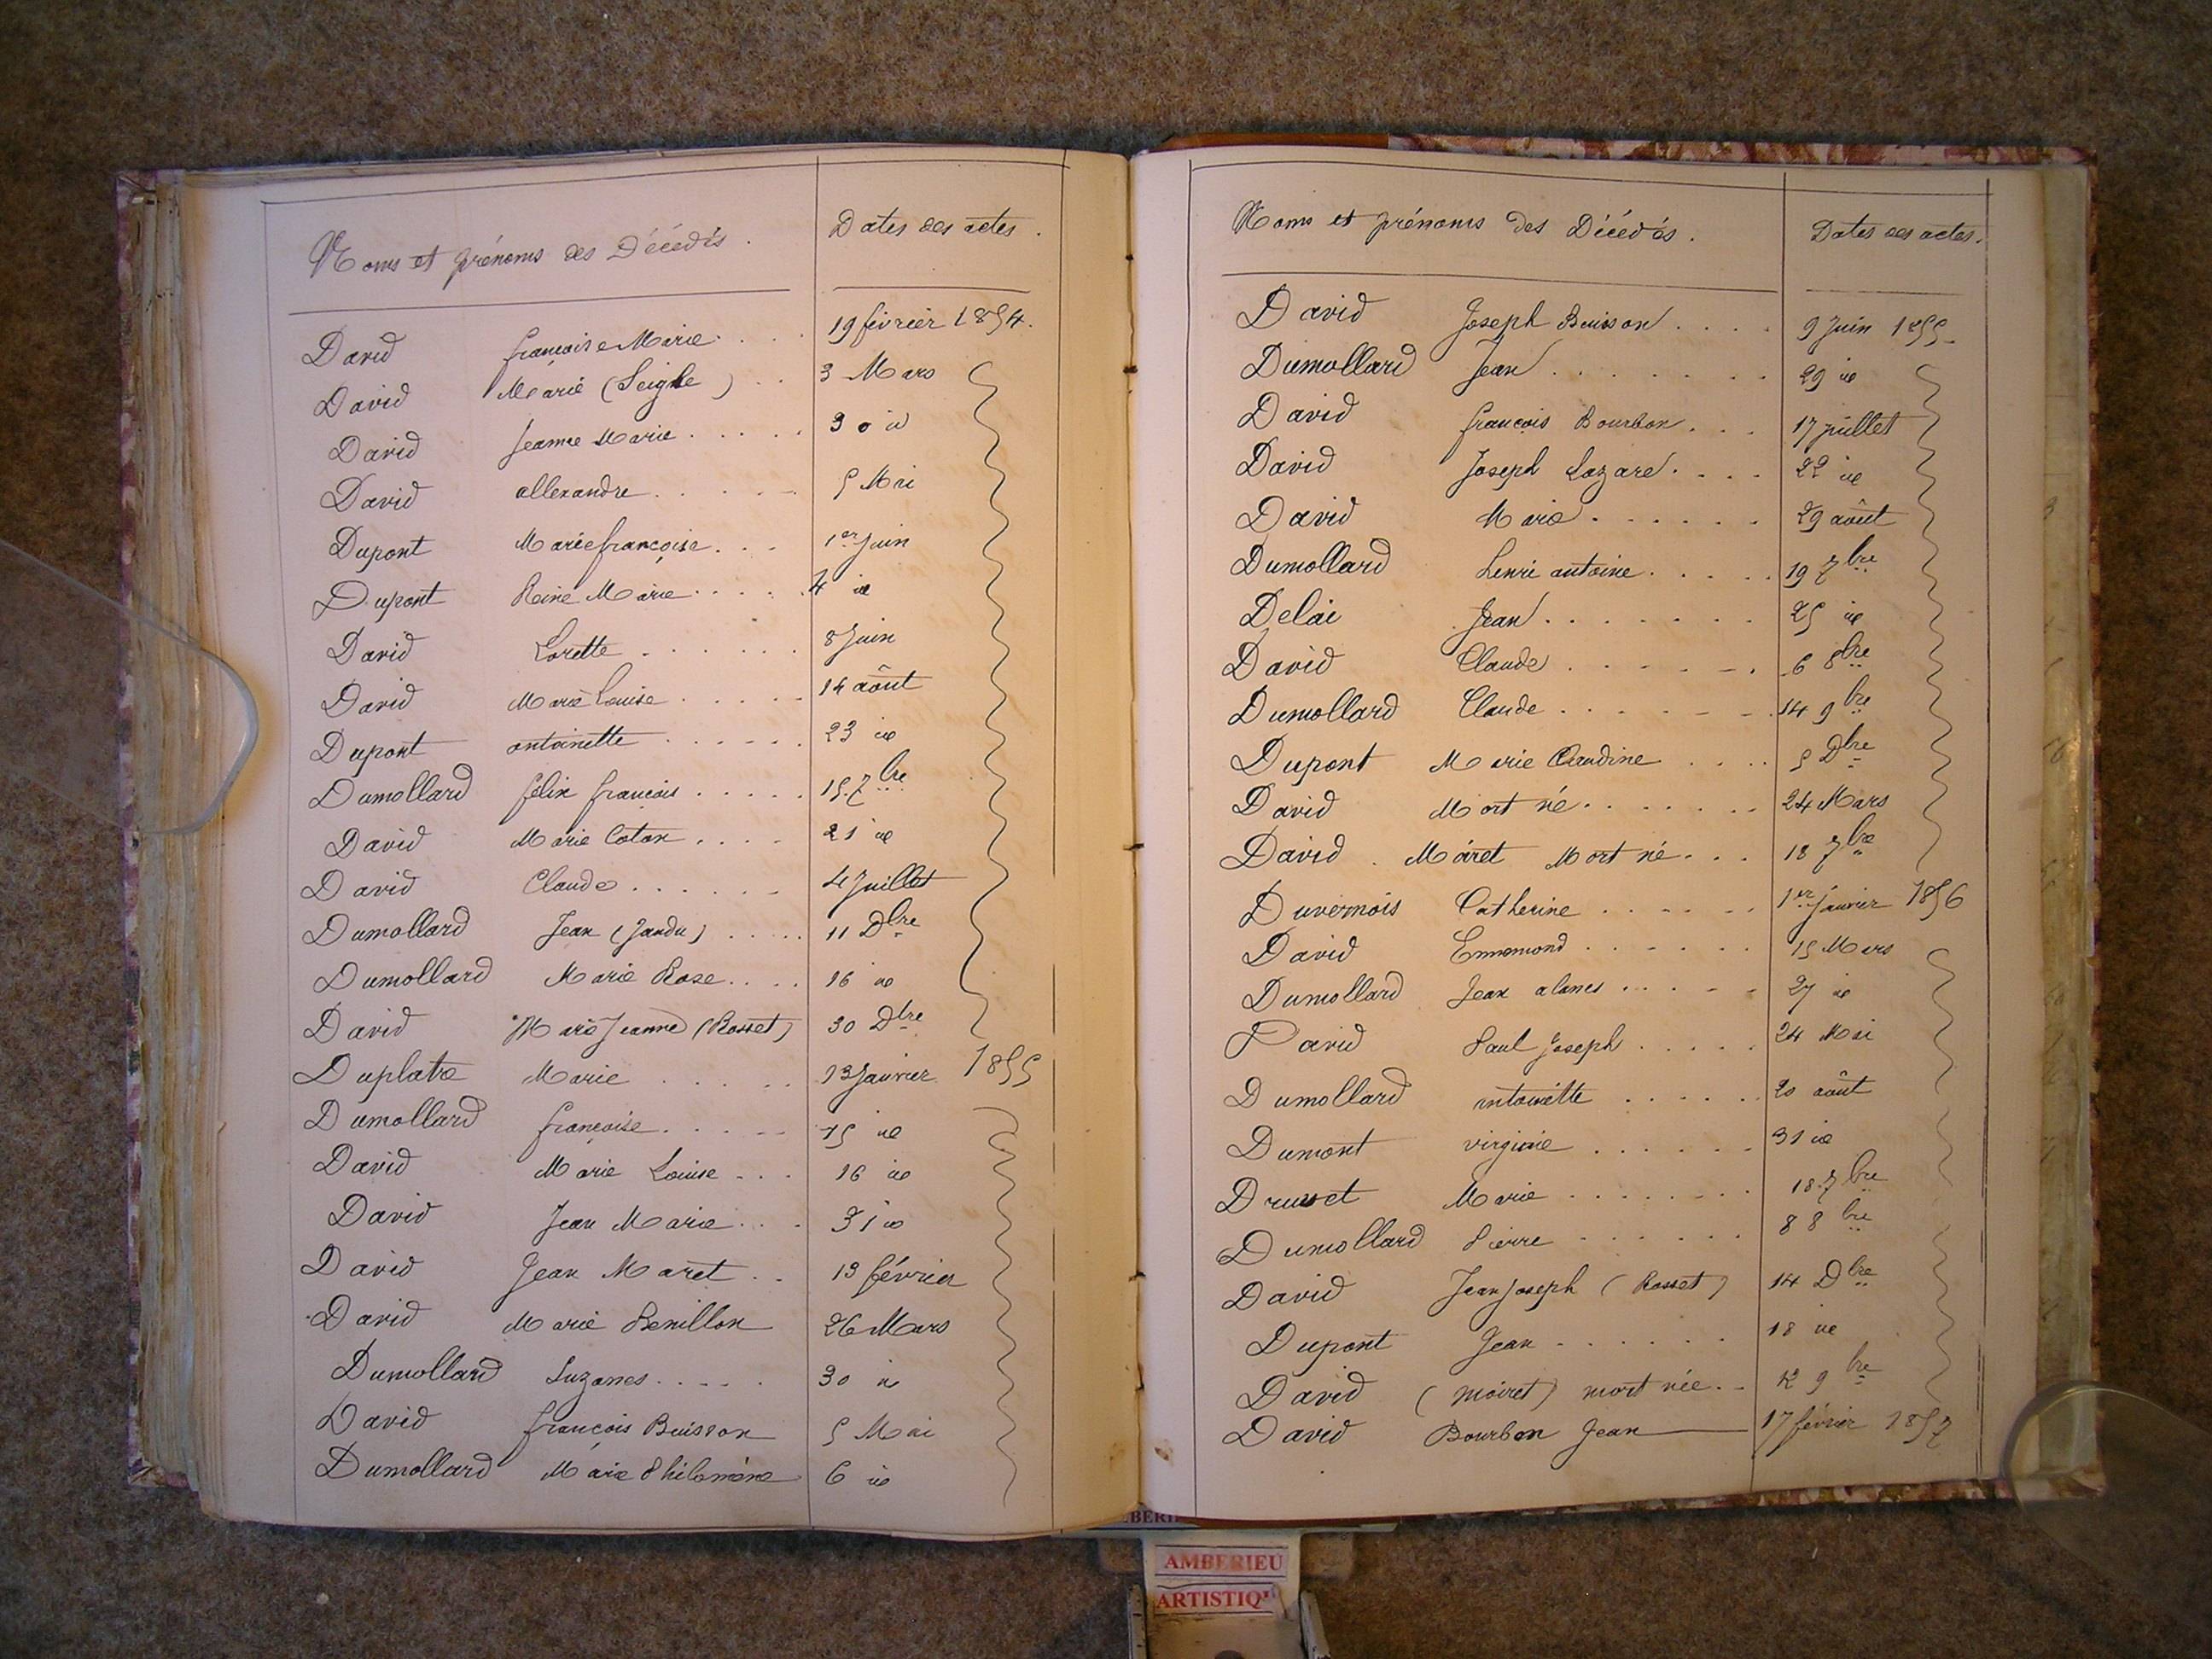 Noms et prénoms des Décédés. Dates des actes.
David françoise Marie 19 février 1854.
David Marie (Seigle) 3 Mars
David Jeanne Marie 30 id
David allexandre 5 Mai
Dupont Marie françoise 1er Juin
Dupont Reine Marie 4 id
David Lorette 8 Juin
David Marie Louise 14 août
Dupont antoinette 23 id
Dumollard félix françois 15 7bre
David Marie Coton 21 id
David Claude 4 Juillet
Dumollard Jean (Jandu) 11 Dbre
Dumollard Marie Rose 16 id
David Marie Jeanne (Rosset) 30 Dbre
Duplatre Marie 13 Janvier 1855
Dumollard françoise 15 id
David Marie Louise 16 id
David Jean Marie 31 id
David Jean Maret 13 février
David Marie 26 Mars
Dumollard Suzanne 30 id
David françois Buisson 5 Mai
Dumollard Marie Philomène 6 id
Noms et prénoms des Décédés. Dates des actes.
David Joseph Buisson 9 Juin 1855
Dumollard Jean 29 id
David françois Bourbon 17 juillet
David Joseph Lazare 22 id
David Marie 29 août
Dumollard henri antoine 19 7bre
Delai Jean 25 id
David Claude 6 8bre
Dumollard Claude 14 9bre
Dupont Marie Claudine 5 Dbre
David Mort né 24 Mars
David Maret Mort né 18 7bre
Duvernois Catherine 1er Janvier 1856
David Ennemond 15 Mars
Dumollard Jean 27 id
David Paul Joseph 24 Mai
Dumollard antoinette 20 août
Dumont virginie 31 id
Marie 18 7bre
Dumollard Pierre 8 8bre
David Jean Joseph (Rosset) 14 Dbre
Dupont Jean 18 id
David (Moiret) mort née 12 9bre
David Bourbon Jean 17 février 1857
AMBERIEU
ARTISTIQ